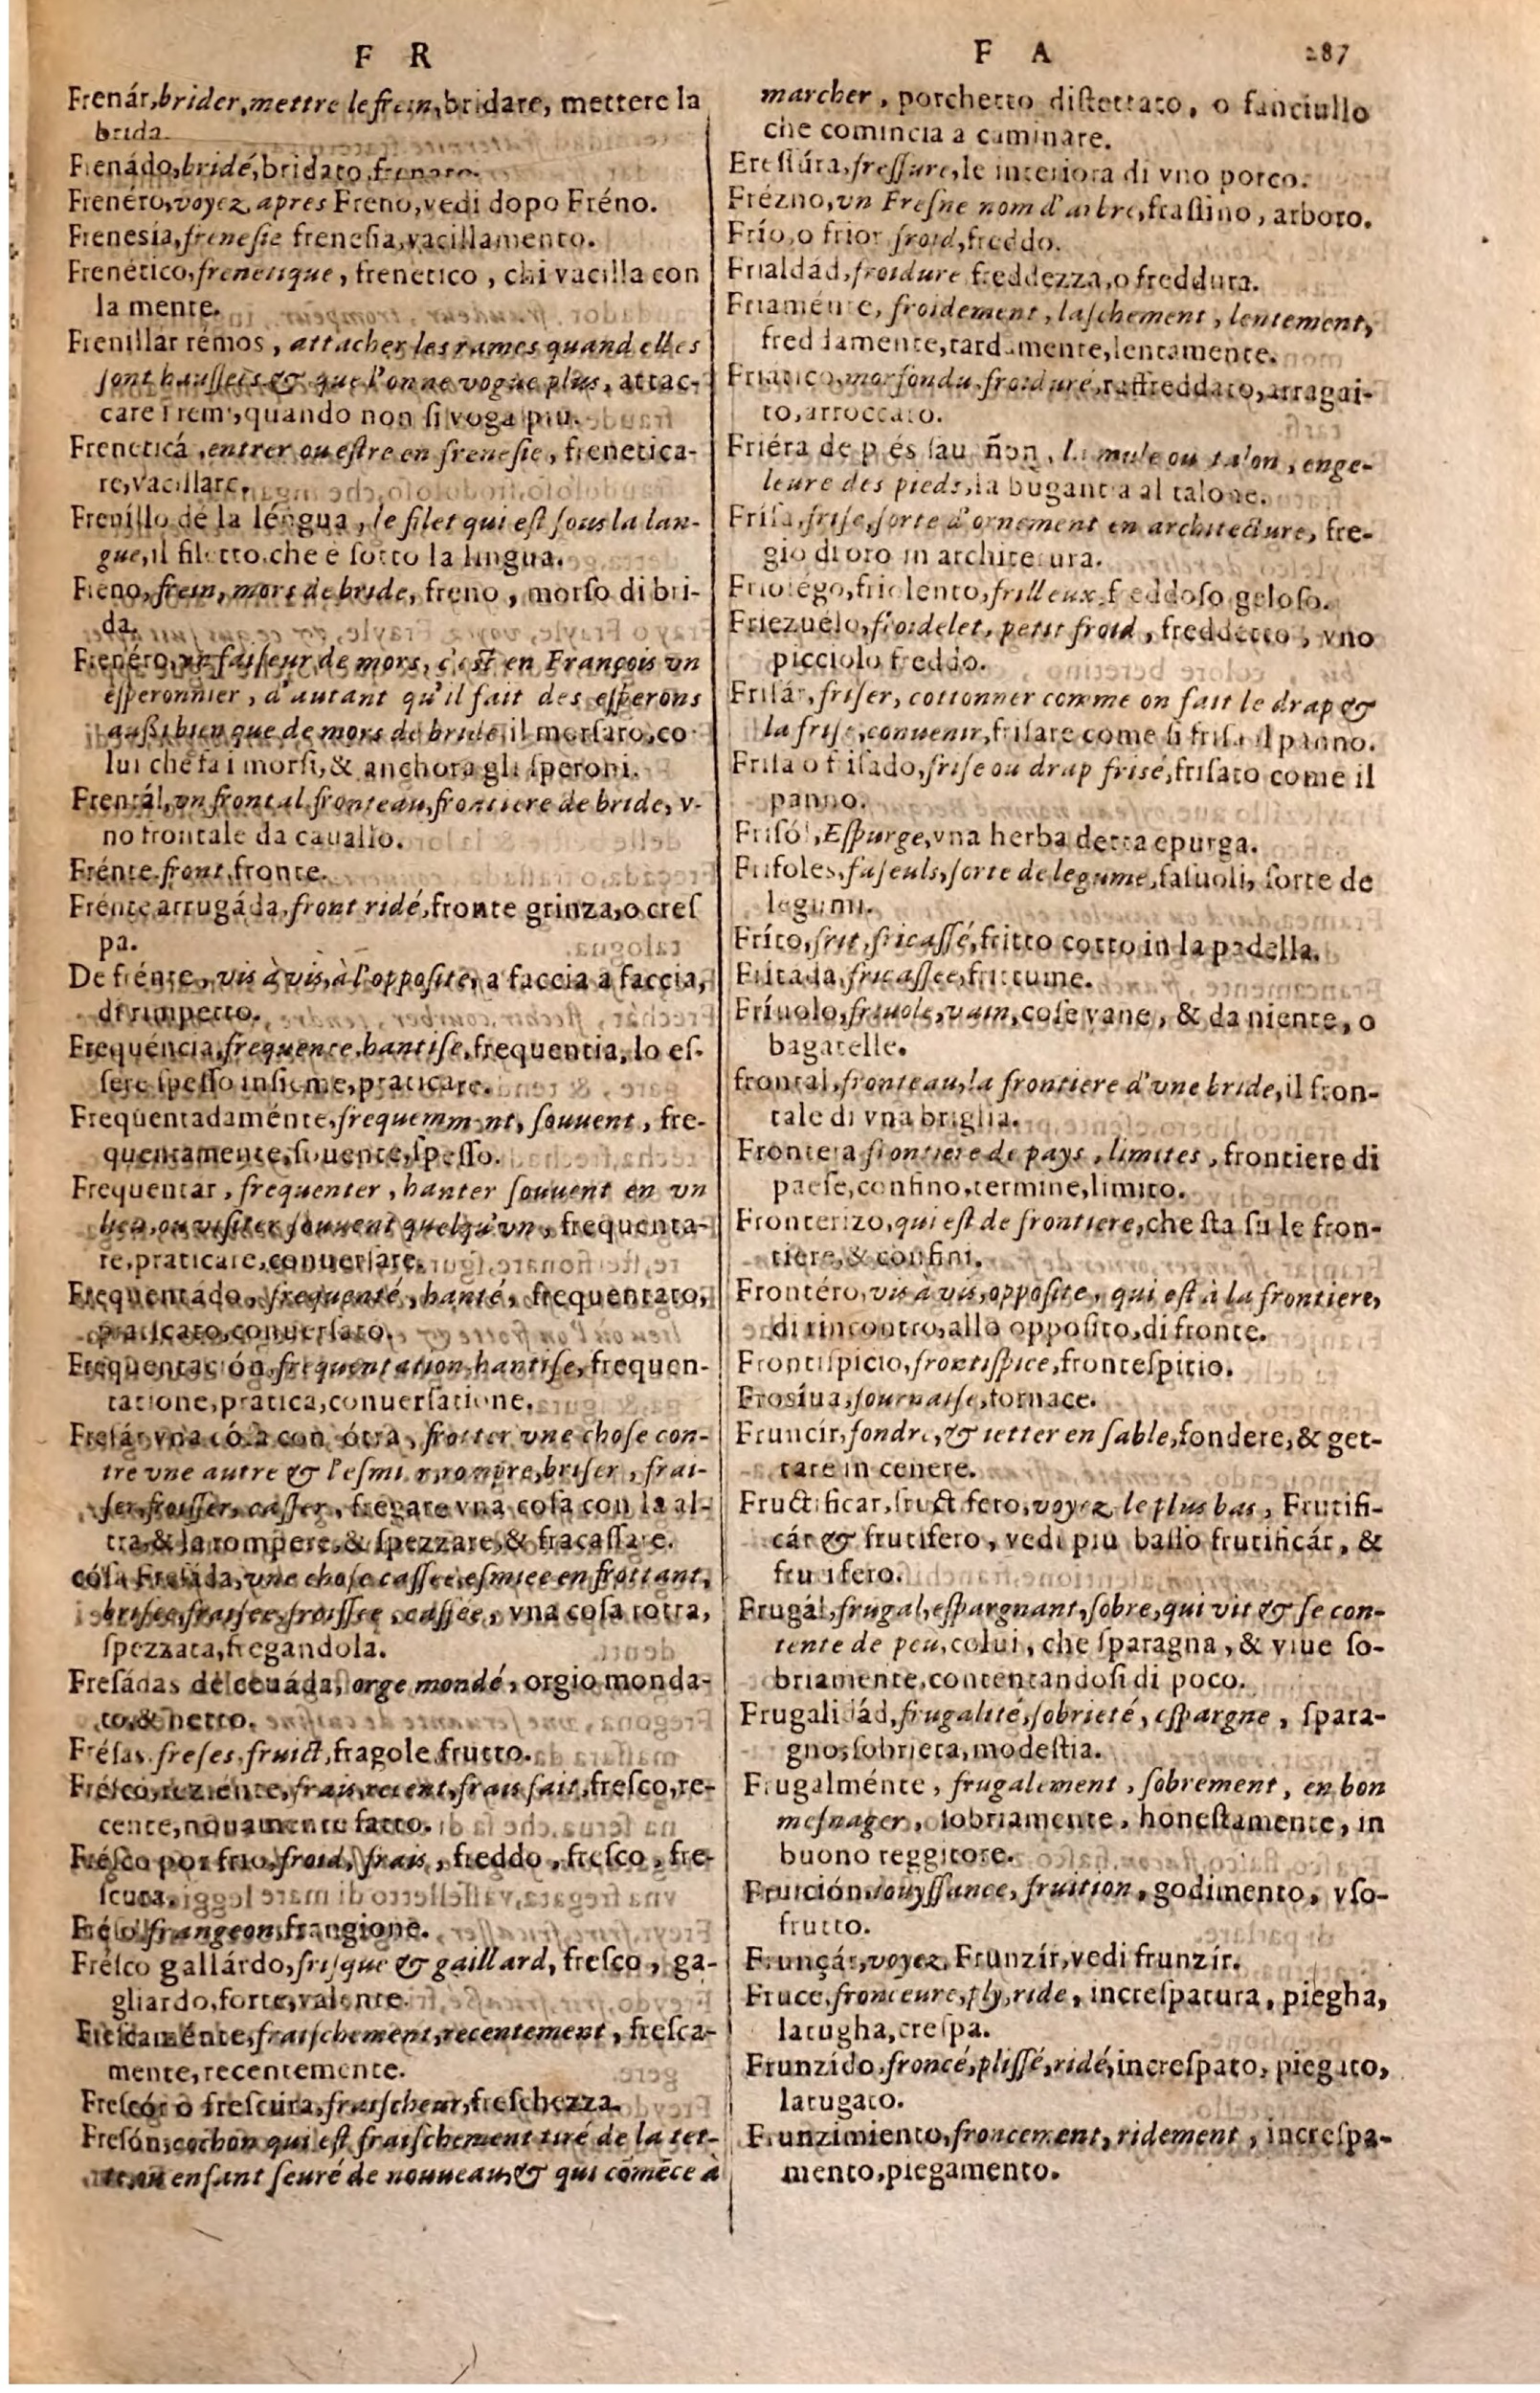 F R
Frenár, brider, mettre le frein, bridare, mettere la
brida.
Frenádo, bridé, bridato, frenato.
Frenéro, voyez apres Freno, vedi dopo Fréno.
Frenesia, frenesie frenesia, vacillamento.
Frenético, frenetique, frenetico, chi vacilla con
la mente.
Frenillar rémos, attacher les rames quand elles
sont haussees & que l'on ne vogue plus, attac-
care i remi, quando non si voga piu.
Freneticá, entrer ou estre en frenesie, frenetica-
re, vacillare.
Frenillo de la léngua, le filet qui est sous la lan-
gue, il filetto che e sotto la lingua.
Freno, frein, mors de bride, freno, morso di bri-
da.
Frenéro, vn faiseur de mors, c'est en François vn
esperonnier, d'autant qu'il fait des esperons
aussi bien que de mors de bride, il morsaro, co
lui che fa i morsi, & anchora gli speroni.
Frentál, vn frontal, fronteau, frontiere de bride, v-
no frontale da cauallo.
Frénte front, fronte.
Frénte arrugáda, front ridé, fronte grinza, o cres
pa.
De frénte, vis à vis, à l'opposite, a faccia a faccia,
di rimpetto.
Frequéncia, frequence, hantise, frequentia, lo es-
sere spesso insieme, praticare.
Frequentadaménte, frequemment, souuent, fre-
quentamente, souente, spesso.
Frequentar, frequenter, hanter souuent en vn
lieu, ou visiter souuent quelqu'vn, frequenta-
re, praticare, conuersare.
Frequentádo, frequenté, hanté, frequentato,
praticato, conuersato.
Frequentación, frequentation, hantise, frequen-
tatione, pratica, conuersatione.
Fresár vna cósa con ótra, frotter vne chose con-
tre vne autre & l'esmier, rompre, briser, frai-
ser, froisser, casser, fregare vna cosa con la al-
tra, & la rompere, & spezzare, & fracassare.
cósa Fresáda, vne chose cassee, esmiee en frottant,
brisee, fraisee, froissee, cassée, vna cosa rotta,
spezzata, fregandola.
Fresádas de ceuáda, orge mondé, orgio monda-
to, & netto.
Frésas, freses, fruict, fragole, frutto.
Frésco, reziénte, frais, recent, frais fait, fresco, re-
cente, nouamente fatto.
Frésco por frio, froid, frais, freddo, fresco, fre-
scura.
Fréso frangeon, frangione.
Frésco gallárdo, frisque & gaillard, fresco, ga-
gliardo, forte, valente.
Frescaménte, fraischement, recentement, fresca-
mente, recentemente.
Frescór o frescura, fraischeur, freschezza.
Fresón, cochon qui est fraischement tiré de la tet-
te, ou enfant seuré de nouueau, & qui cõmẽce à
F A 287
marcher, porchetto distettato, o fanciullo
che comincia a caminare.
Fressúra, fressure, le interiora di vno porco.
Frézno, vn Fresne nom d'arbre, frassino, arboro.
Frío, o frior froid, freddo.
Frialdád, froidure freddezza, o freddura.
Friaménte, froidement, laschement, lentement,
freddamente, tardamente, lentamente.
Friático, morfondu, froiduré, raffreddato, arragai-
to, arroccato.
Friéra de piés sauañon, la mule ou talon, enge-
leure des pieds, la bugancia al talone.
Frisa, frise, sorte d'ornement en architecture, fre-
gio di oro in architetura.
Friolégo, friolento, frilleux, freddoso geloso.
Friezuélo, froidelet, petit froid, freddetto, vno
picciolo freddo.
Frisár, friser, cottonner comme on fait le drap &
la frise, conuenir, frisare come si frisa il panno.
Frisa o frisado, frise ou drap frisé, frisato come il
panno.
Frisól, Espurge, vna herba detta epurga.
Frisoles, faseuls, sorte de legume, fasuoli, sorte de
legumi.
Fríto, frit, fricassé, fritto cotto in la padella.
Fritada, fricassee, frittume.
Fríuolo, friuole, vain, cose vane, & da niente, o
bagatelle.
frontal, fronteau, la frontiere d'vne bride, il fron-
tale di vna briglia.
Frontera frontiere de pays, limites, frontiere di
paese, confino, termine, limito.
Fronterizo, qui est de frontiere, che sta su le fron-
tiere, & confini.
Frontéro, vis à vis, opposite, qui est à la frontiere,
di rincontro, allo opposito, di fronte.
Frontispicio, frontispice, frontespitio.
Frosíua, fournaise, fornace.
Fruncír, fondre, & ietter en sable, fondere, & get-
tare in cenere.
Fructificar, fructifero, voyez le plus bas, Frutifi-
cár & frutifero, vedi piu basso frutificár, &
frutifero.
Frugál, frugal, espargnant, sobre, qui vit & se con-
tente de peu, colui, che sparagna, & viue so-
briamente, contentandosi di poco.
Frugalidád, frugalité, sobrieté, espargne, spara-
gno, sobrieta, modestia.
Frugalménte, frugalement, sobrement, en bon
mesnager, sobriamente, honestamente, in
buono reggitore.
Fruición, iouyssance, fruition, godimento, vso-
frutto.
Frunçár, voyez, Frunzír, vedi frunzír.
Fruce, fronceure, ply, ride, increspatura, piegha,
latugha, crespa.
Frunzído, froncé, plissé, ridé, increspato, piegato,
latugato.
Frunzimiento, froncement, ridement, increspa-
mento, piegamento.